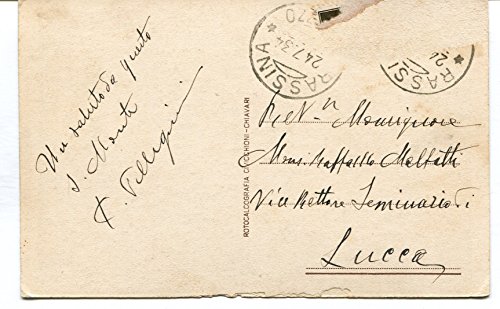 Un saluto da questo
S. Monte
F. Pellegrini
ROTOCALCOGRAFIA CICCHIONI-CHIAVARI
RASSINA
24.7.34
RASSI
24
Rev. Monsignore
Mons. Raffaello
Vice Rettore Seminario di
Lucca